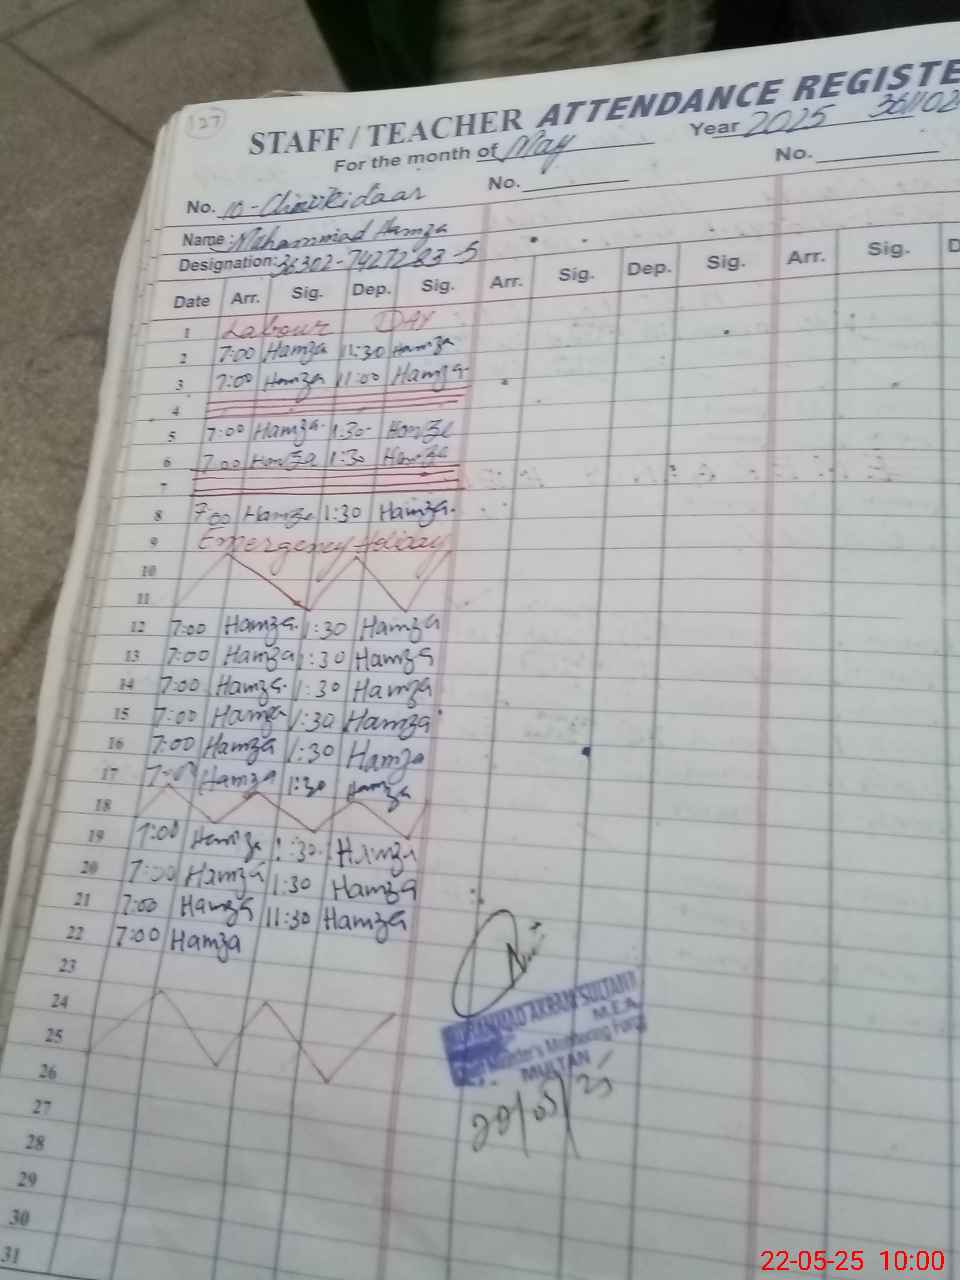 127
STAFF / TEACHER ATTENDANCE REGISTE
For the month of May Year 2025 361102
No. 10-Chowkidaar No. No.
Name: Muhammad Hamza
Designation: 36302-7427283-5
Date Arr. Sig. Dep. Sig. Arr. Sig. Dep. Sig. Arr. Sig. D
1 Labour DAY
2 7:00 Hamza 11:30 Hamza
3 7:00 Hamza 11:00 Hamza
4
5 7:00 Hamza 1:30 Hamza
6 7:00 Hamza 1:30 Hamza
7
8 7:00 Hamza 1:30 Hamza
9 Emergency Holiday
10
11
12 7:00 Hamza 1:30 Hamza
13 7:00 Hamza 1:30 Hamza
14 7:00 Hamza 1:30 Hamza
15 7:00 Hamza 1:30 Hamza
16 7:00 Hamza 1:30 Hamza
17 7:00 Hamza 1:30 Hamza
18
19 7:00 Hamza 1:30 Hamza
20 7:00 Hamza 1:30 Hamza
21 7:00 Hamza 11:30 Hamza
22 7:00 Hamza
23
24
25
26
27
28
29
30
31
MUHAMMAD AKRAM SULTANI
M.E.A
Chief Minister's Monitoring Force
MULTAN
22/05/25
22-05-25 10:00